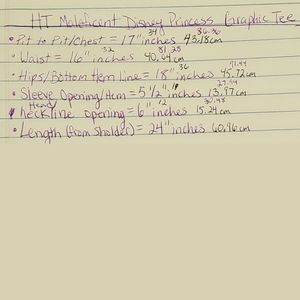 HT Maleficent Disney Princess Graphic Tee
34 86.36
• Pit to Pit/Chest = 17" inches 43.18cm
32 81.28
• Waist = 16" inches 40.64cm
36 91.44
• Hips/Bottom Hem Line = 18" inches 45.72cm
11 27.94
• Sleeve Opening/Hem = 5 1/2" inches 13.97cm
Head/ 12 30.48
neckline opening = 6" inches 15.24cm
• Length (from Sholder) = 24" inches 60.96cm